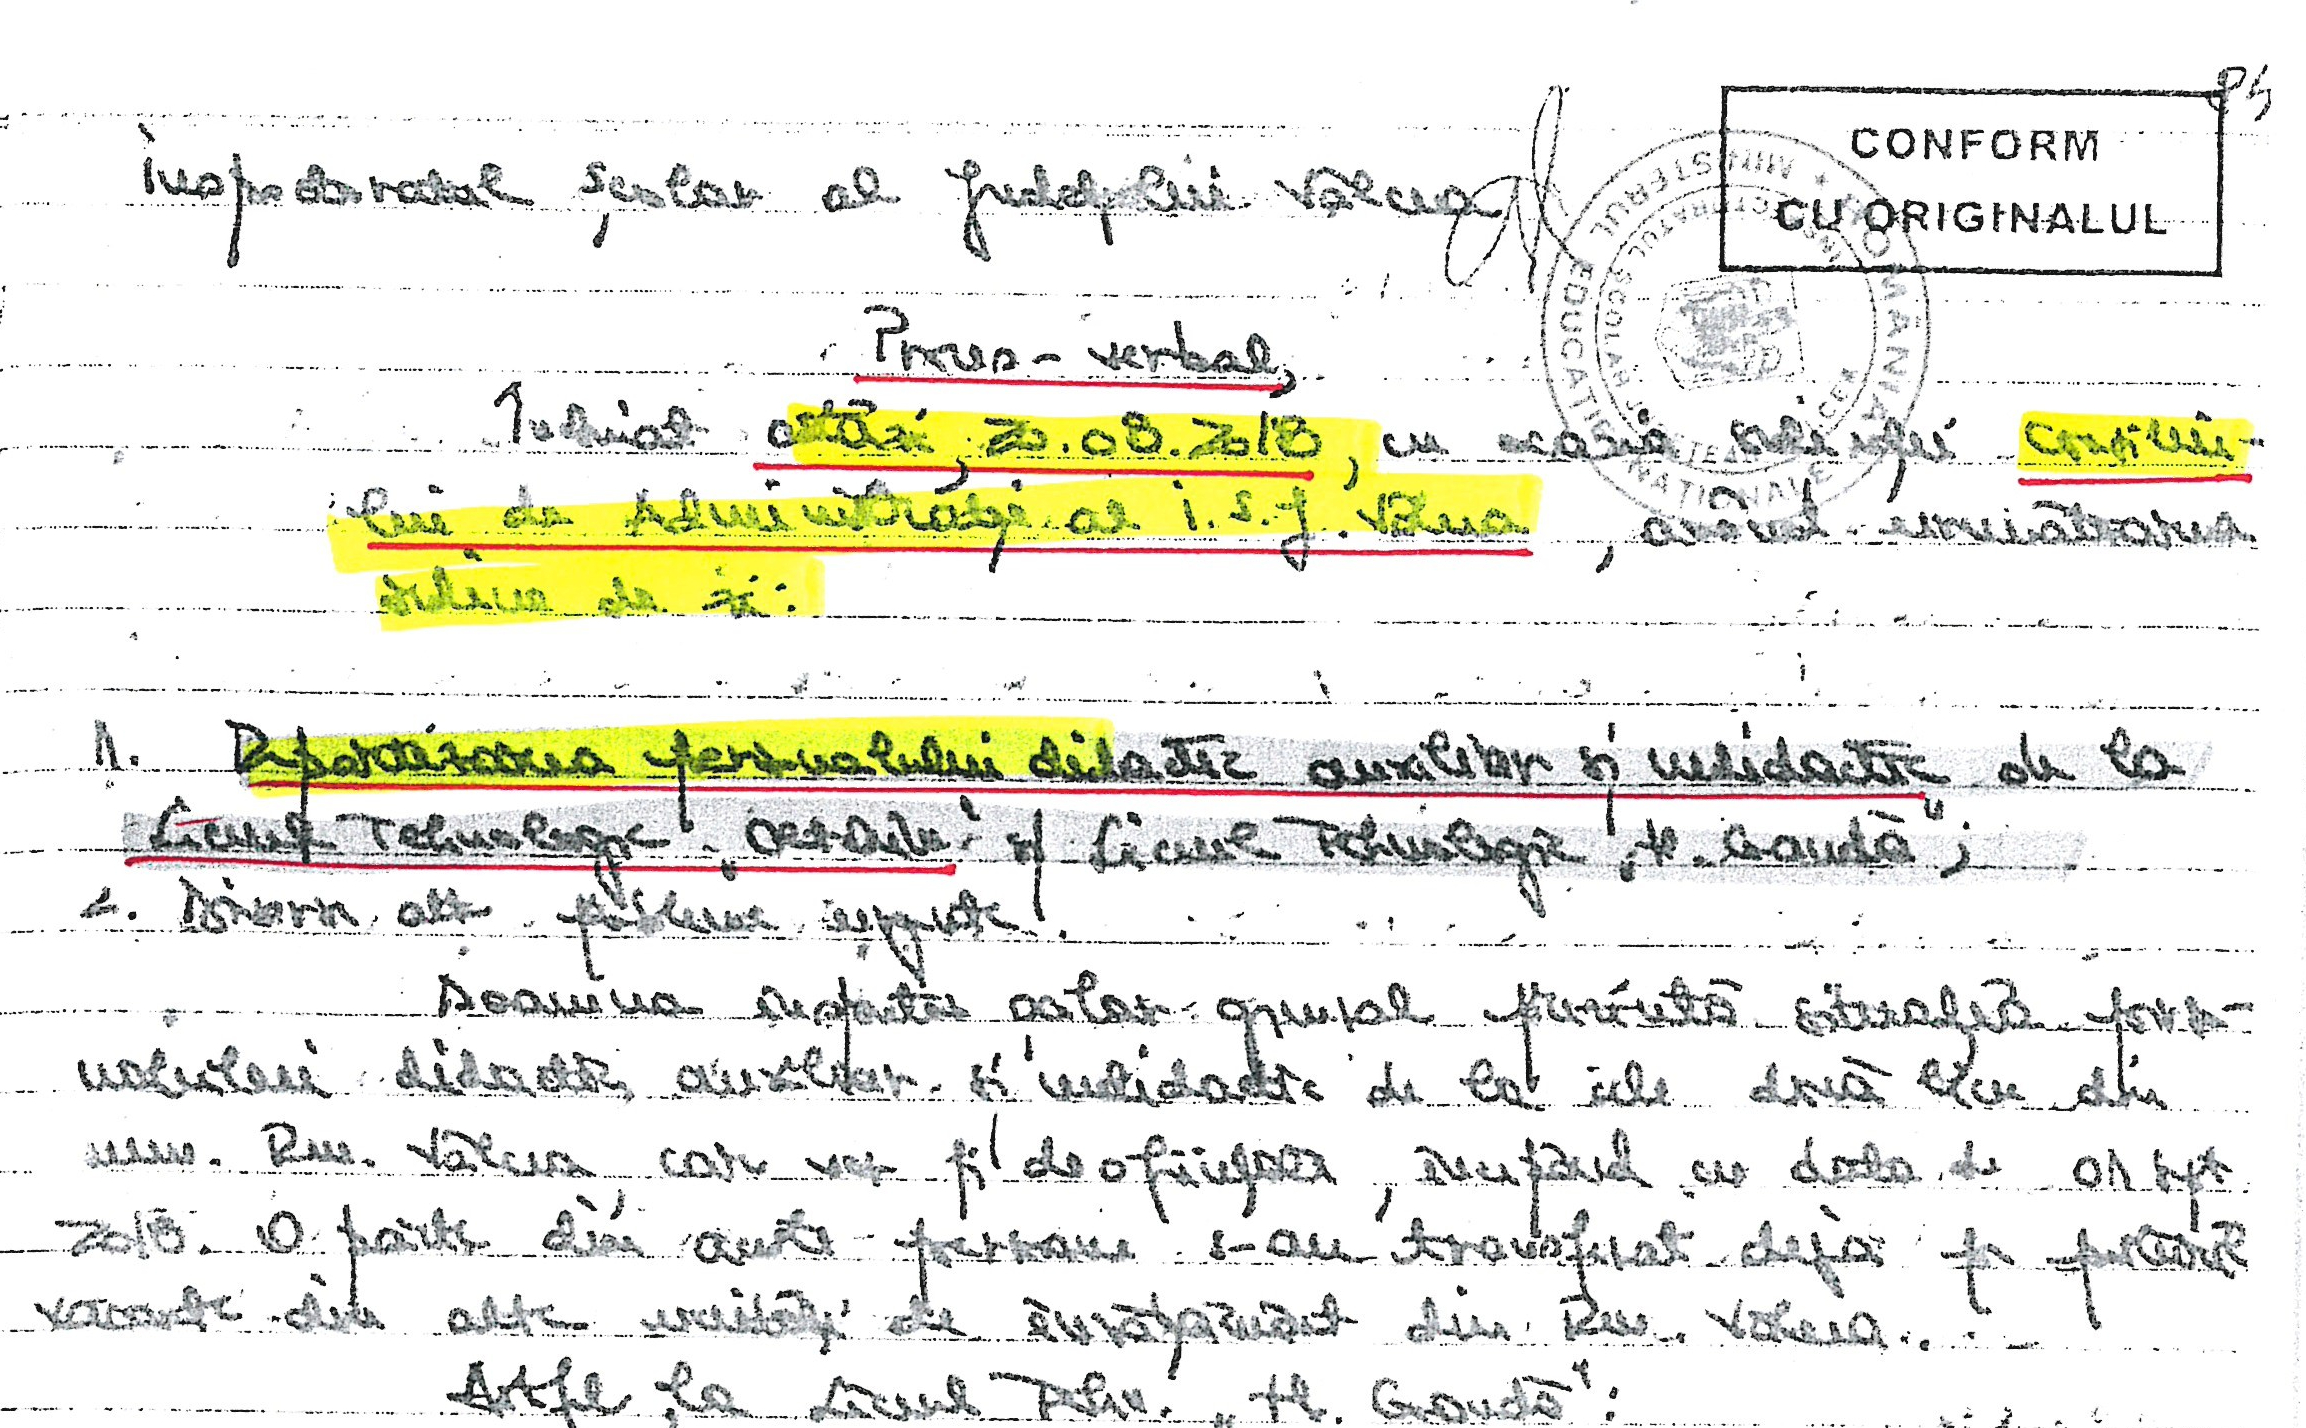 P4
CONFORM
CU ORIGINALUL
Inspectoratul școlar al județului Vâlcea
ROMÂNIA * MINISTERUL EDUCAȚIEI NAȚIONALE
INSPECTORATUL ȘCOLAR JUDEȚEAN
Proces-verbal,
Încheiat astăzi, 20.08.2018, cu ocazia ședinței Consiliu-
lui de Administrație al I.S.J. Vâlcea, având următoarea
ordine de zi:
1. Repartizarea personalului didactic auxiliar și nedidactic de la
Liceul Tehnologic „Oltchim" și Liceul Tehnologic „H. Coandă";
2. Diverse alte probleme urgente.
Doamna inspector școlar general prezintă situația perso-
nalului didactic auxiliar și nedidactic de la cele două licee din
mun. Rm. Vâlcea, care vor fi desființate, începând cu data de 01 sept
2018. O parte din aceste persoane s-au transferat deja pe posturile
vacante din alte unități de învățământ din Rm. Vâlcea.
Astfel, la Liceul Tehn. „H. Coandă":